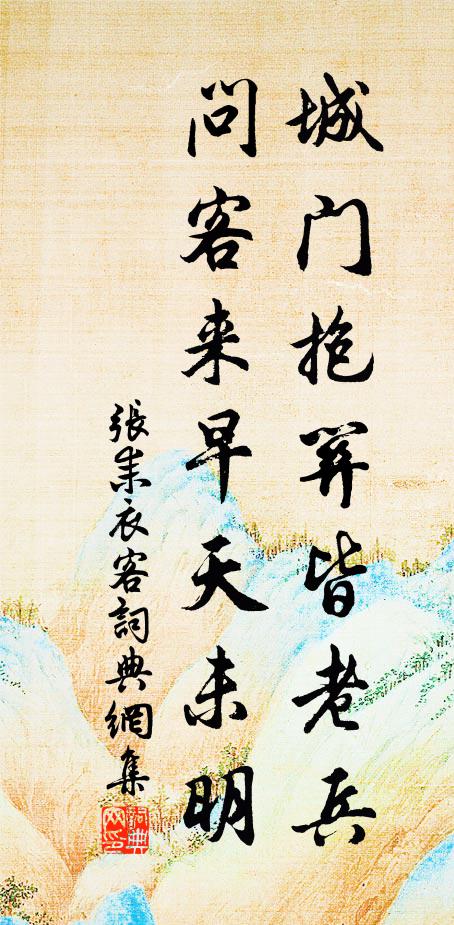 城门抱關皆老兵
问客来早天未明
張耒衣客詞典網集
詞典